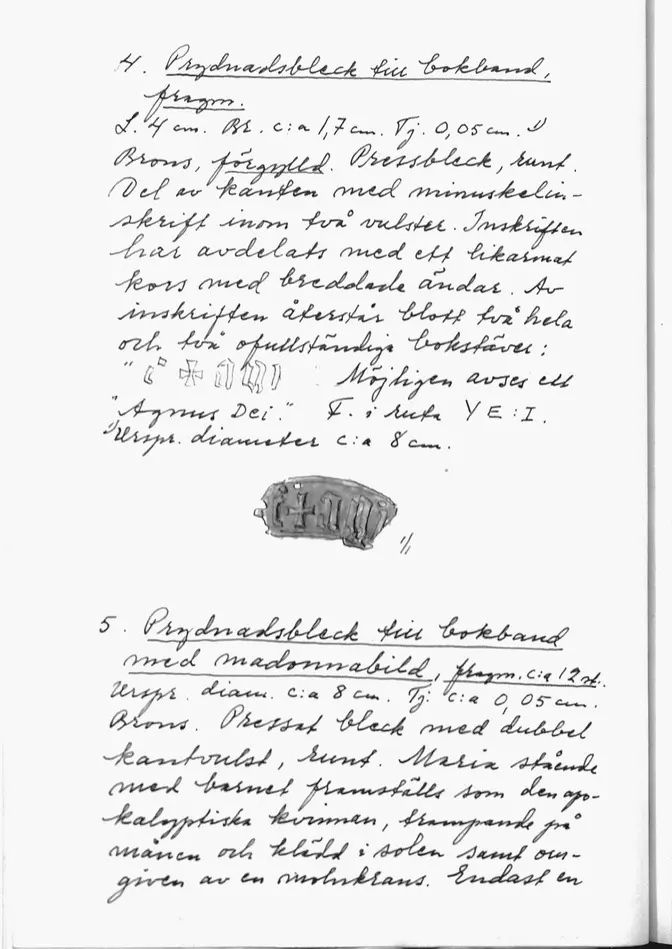 4. Prydnadsbleck till bokband,
fragm.
L. 4 cm. Br. c:a 1,7 cm. Tj. 0,05 cm. 1)
Brons, förgylld. Pressbleck, runt.
Del av kanten med minuskelin-
skrift inom två vulster. Inskriften
har avdelats med ett likarmat
kors med breddade ändar. Av
inskriften återstår blott två hela
och två ofullständiga bokstäver:
Möjligen avses ett
"Agnus Dei." F. i ruta YE:I.
1) Urspr. diameter c:a 8 cm.
1/1
5. Prydnadsbleck till bokband
med madonnabild, fragm. c:a 12 st.
Urspr. diam. c:a 8 cm. Tj. c:a 0,05 cm.
Brons. Pressat bleck med dubbel
kantvulst, runt. Maria stående
med barnet framställs som den apo-
kalyptiska kvinnan, trampande på
månen och klädd i solen samt om-
given av en molnkrans. Endast en